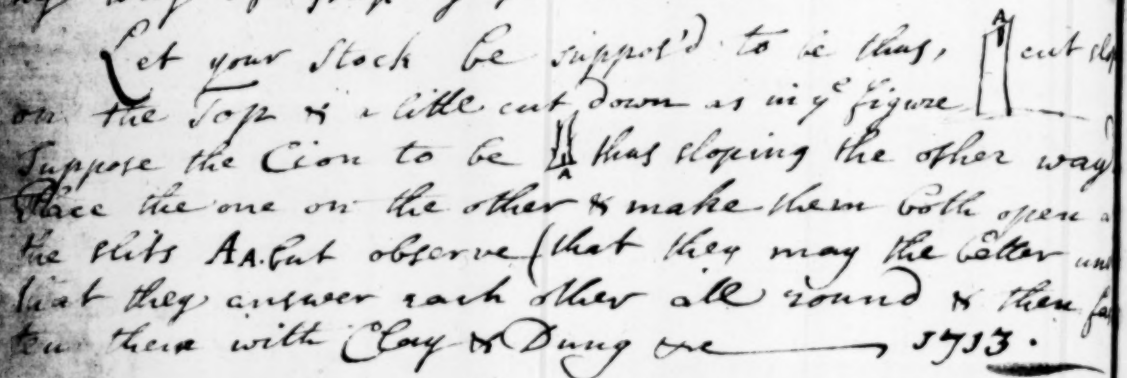 Let your Stock be suppos'd to be thus, A cut
on the Top & a little cut down as in ye figure
Suppose the Cion to be A thus sloping the other way
Place the one on the other & make them both open
the slits AA. but observe (that they may the better
that they answer each other all round & then
ten them with Clay & Dung &c 1713.